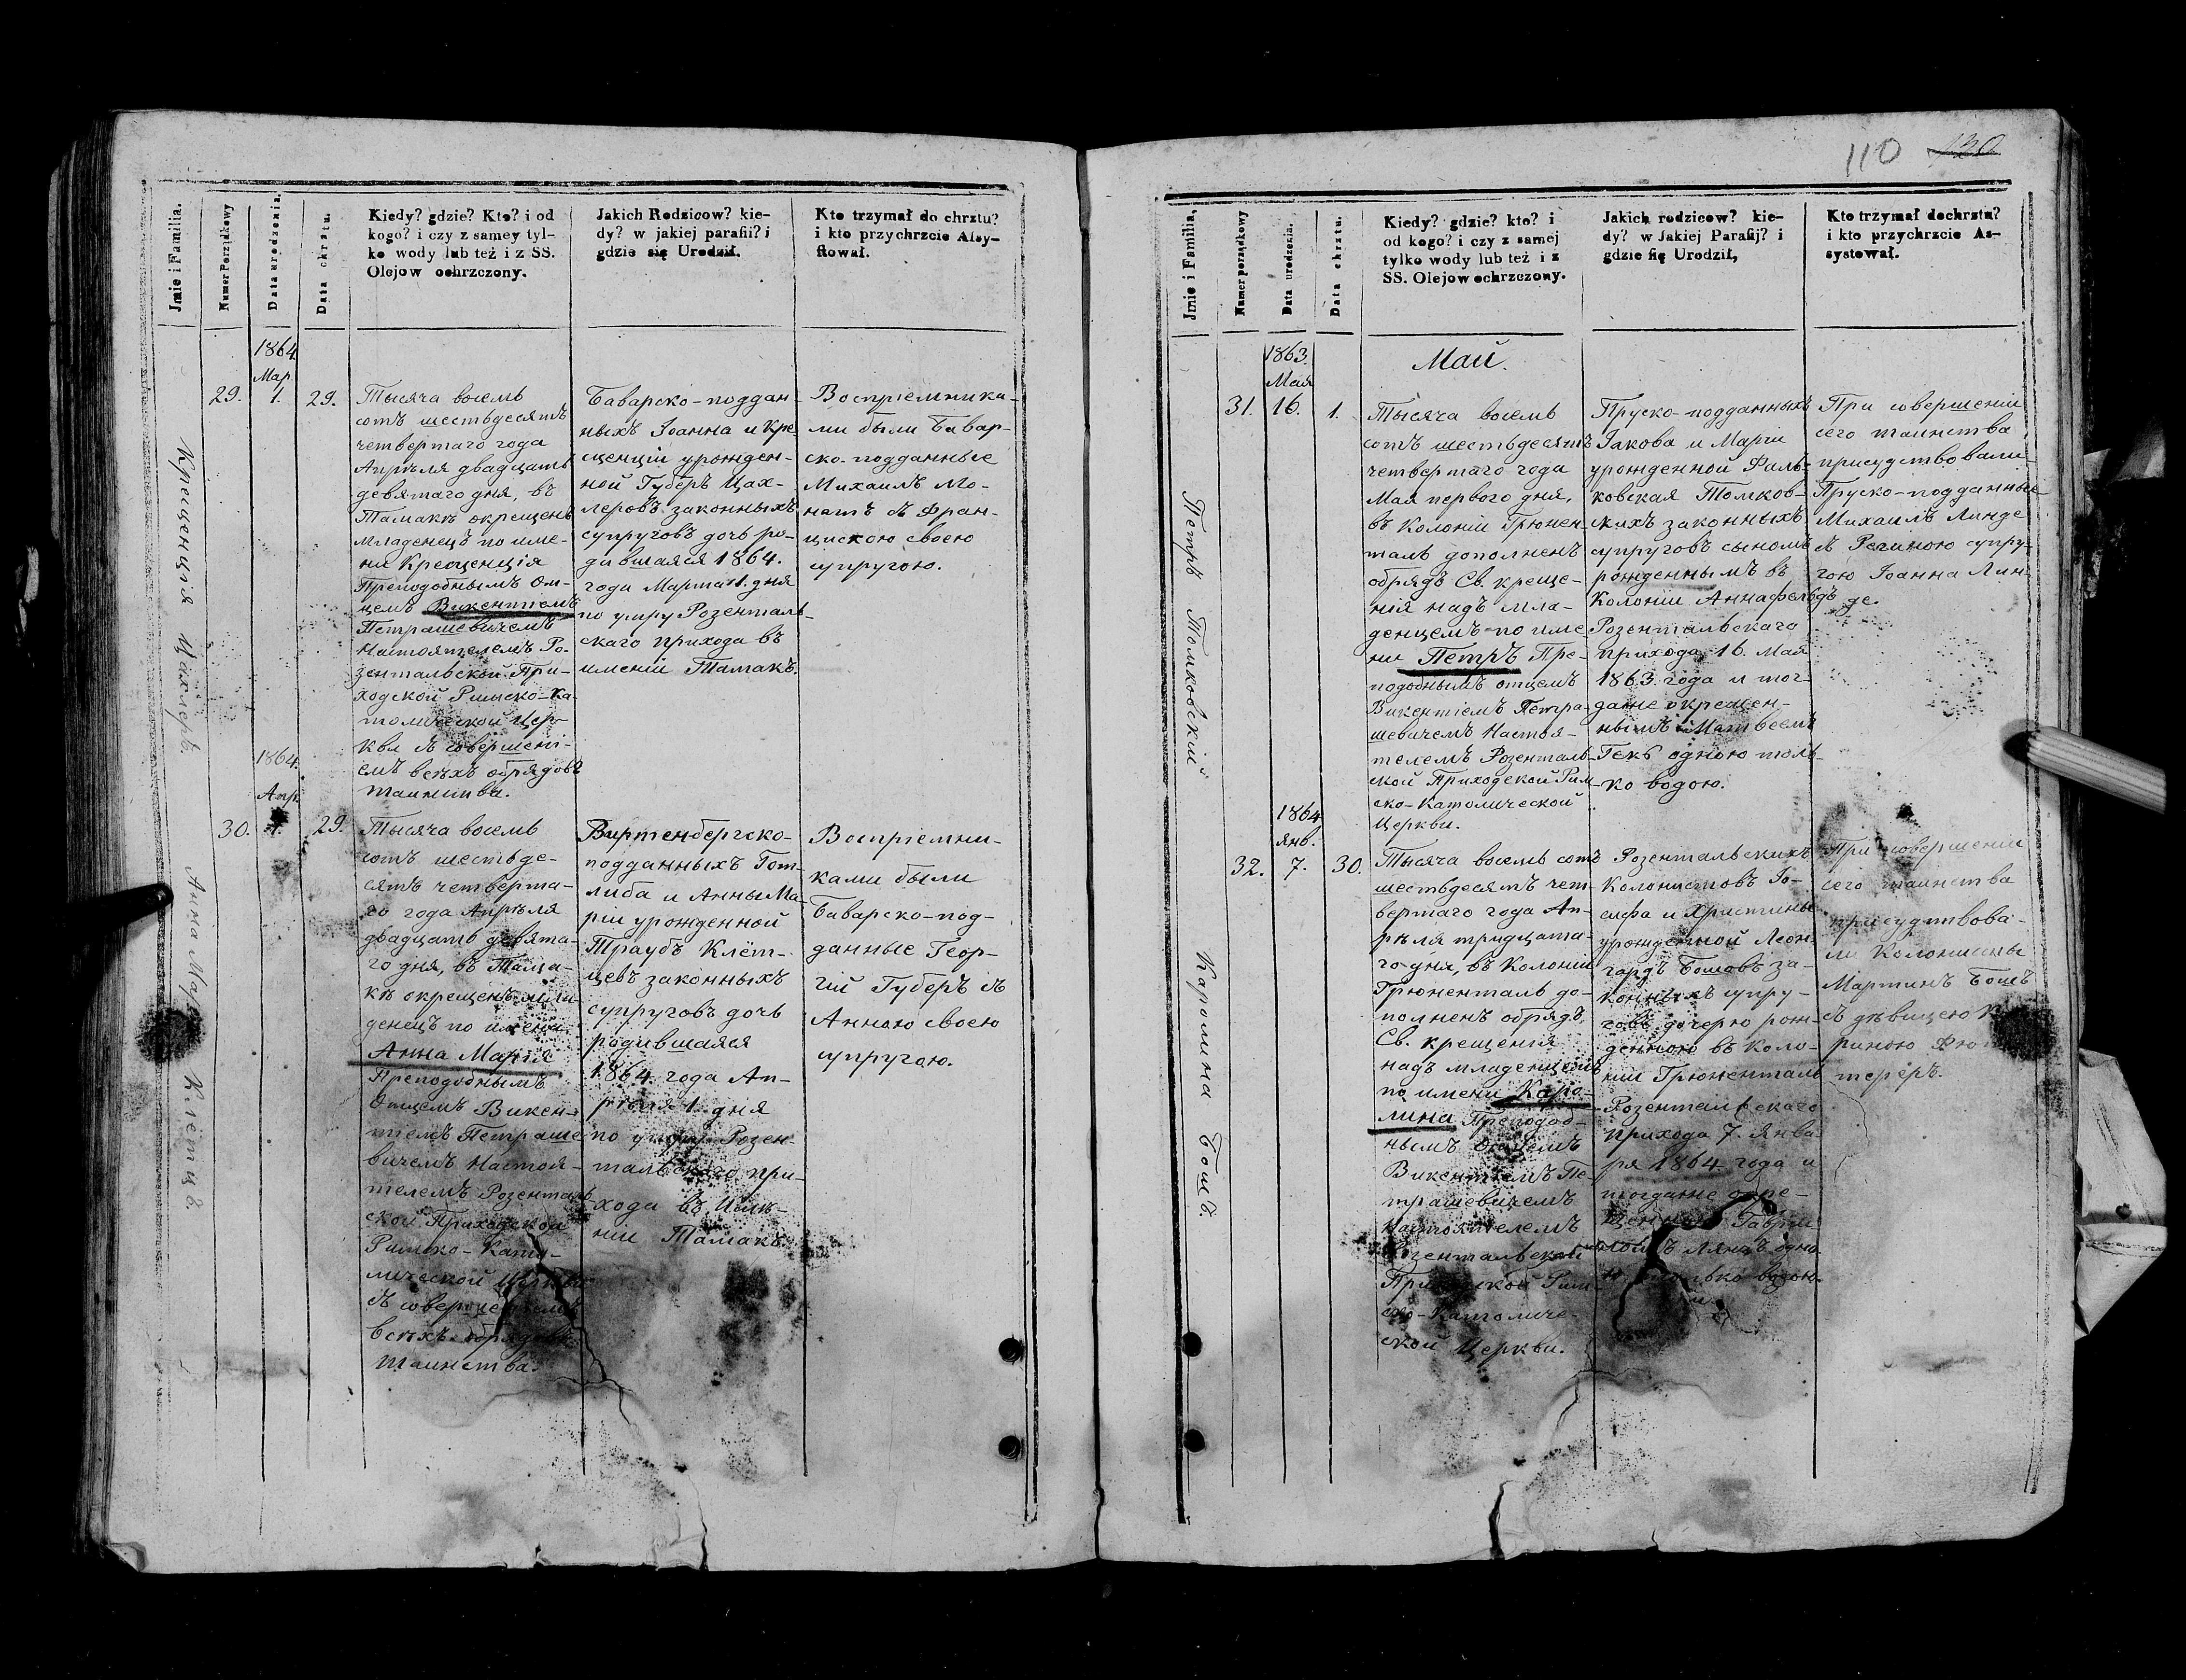 110 130
Jmie i Familia.
Numer Porządkowy
Data urodzenia.
Data chrztu.
Kiedy? gdzie? Kto? i od
kogo? i czy z samey tyl-
ko wody lub też i z SS.
Olejow ochrzczony.
Jakich Rodzicow? kie-
dy? w jakiej parafii? i
gdzie się Urodził.
Kto trzymał do chrztu?
i kto przychrzcie Assy-
stował.
Кресценція Цахлеръ.
1864
Мар.
29. 1. 29.
Тысяча восемь
сотъ шестьдесятъ
четвертаго года
Апрѣля двадцать
девятаго дня, въ
Тамакѣ окрещенъ
младенецъ по име-
ни Кресценція
Преподобнымъ От-
цемъ Викентіемъ
Петрашевичемъ
Настоятелемъ Ро-
зентальской При-
ходской Римско-Ка-
толической Цер-
кви съ совершені-
емъ всѣхъ обрядовъ
таинства.
Баварско-поддан-
ныхъ Іоанна и Кре-
сценціи урожден-
ной Губеръ Цах-
леровъ законныхъ
супруговъ дочь ро-
дившаяся 1864.
года Марта 1. дня
по утру Розенталь-
скаго прихода въ
имѣніи Тамакъ.
Воспріемника-
ми были Бавар-
ско-подданные
Михаилъ Мо-
натъ съ Фран-
цискою своею
супругою.
Анна Марія Клетцъ.
1864.
Апр.
30. 1. 29.
Тысяча восемь
сотъ шестьде-
сятъ четверта-
го года Апрѣля
двадцать девята-
го дня, въ Тама-
кѣ окрещенъ мла-
денецъ по имени
Анна Марія
Преподобнымъ
Отцемъ Викен-
тіемъ Петраше-
вичемъ Настоя-
телемъ Розенталь-
ской Приходской
Римско-Като-
лической Церкви
съ совершеніемъ
всѣхъ обрядовъ
таинства.
Виртенбергско-
подданныхъ Гот-
либа и Анны Ма-
ріи урожденной
Траубъ Клёт-
цевъ законныхъ
супруговъ дочь
родившаяся
1864 года Ап-
рѣля 1. дня
по утру Розен-
тальскаго при-
хода въ Имѣ-
ніи Тамакъ.
Воспріемни-
ками были
Баварско-под-
данные Геор-
гій Губеръ съ
Анною своею
супругою.
Jmie i Familia.
Numer porządkowy
Data urodzenia.
Data chrztu.
Kiedy? gdzie? kto? i
od kogo? i czy z samej
tylko wody lub też i z
SS. Olejow ochrzczony.
Jakich rodzicow? kie-
dy? w Jakiej Parafij? i
gdzie się Urodził,
Kto trzymał dochrztu?
i kto przychrzcie As-
systował.
Петръ Томковскій
1863.
Мая
Май.
31. 16. 1.
Тысяча восемь
сотъ шестьдесятъ
четвертаго года
Мая перваго дня,
въ Колоніи Грюнен-
таль дополненъ
обрядъ Св. креще-
нія надъ мла-
денцемъ по име-
ни Петръ Пре-
подобнымъ отцемъ
Викентіемъ Петра-
шевичемъ Настоя-
телемъ Розенталь-
ской Приходской Рим-
ско-Католической
Церкви.
Пруско-подданныхъ
Іакова и Маріи
урожденной Фаль-
ковская Томков-
скихъ законныхъ
супруговъ сыномъ
рожденнымъ въ
Колоніи Аннафельдъ
Розентальскаго
прихода 16. Мая
1863. года и тог-
даже окрещен-
нымъ Матвеемъ
Гекъ одною толь-
ко водою.
При совершеніи
сего таинства
присудствовали
Пруско-подданные
Михаилъ Линде
съ Региною супру-
гою Іоанна Лин-
де.
Каролина Бошъ
1864
Янв.
32. 7. 30.
Тысяча восемь сотъ
шестьдесятъ чет-
вертаго года Ап-
рѣля тридцата-
го дня, въ Колоніи
Грюненталь до-
полненъ обрядъ
Св. крещенія
надъ младенцемъ
по имени Каро-
лина Преподоб-
нымъ Отцемъ
Викентіемъ Пе-
трашевичемъ
Настоятелемъ
Розентальской
Приходской Рим-
ско-Католиче-
ской Церкви.
Розентальскихъ
Колонистовъ Іо-
сифа и Христины
урожденной Леон-
гардъ Бошовъ за-
конныхъ супру-
говъ дочерю рож-
денною въ Коло-
ніи Грюненталь
Розентальскаго
прихода 7. Янва-
ря 1864 года и
тогдаже окре-
щенной Гаврі-
иломъ Лянгъ одно-
ю только водою.
При совершеніи
сего таинства
присудствова-
ли Колонисты
Мартинъ Бошъ
съ дѣвицею
риною
теръ.